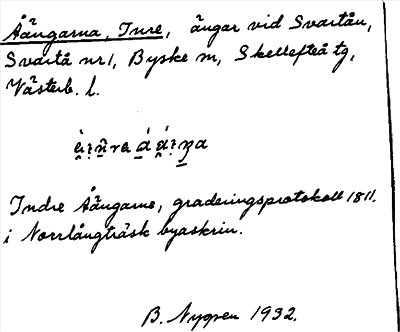 Åängarna, Inre, ängar vid Svartån,
Svartå nr 1, Byske sn, Skellefteå tg,
Västerb. l.
Indre Åängarne, graderingsprotokoll 1811.
i Norrlångträsk byaskrin.
B. Nygren 1932.